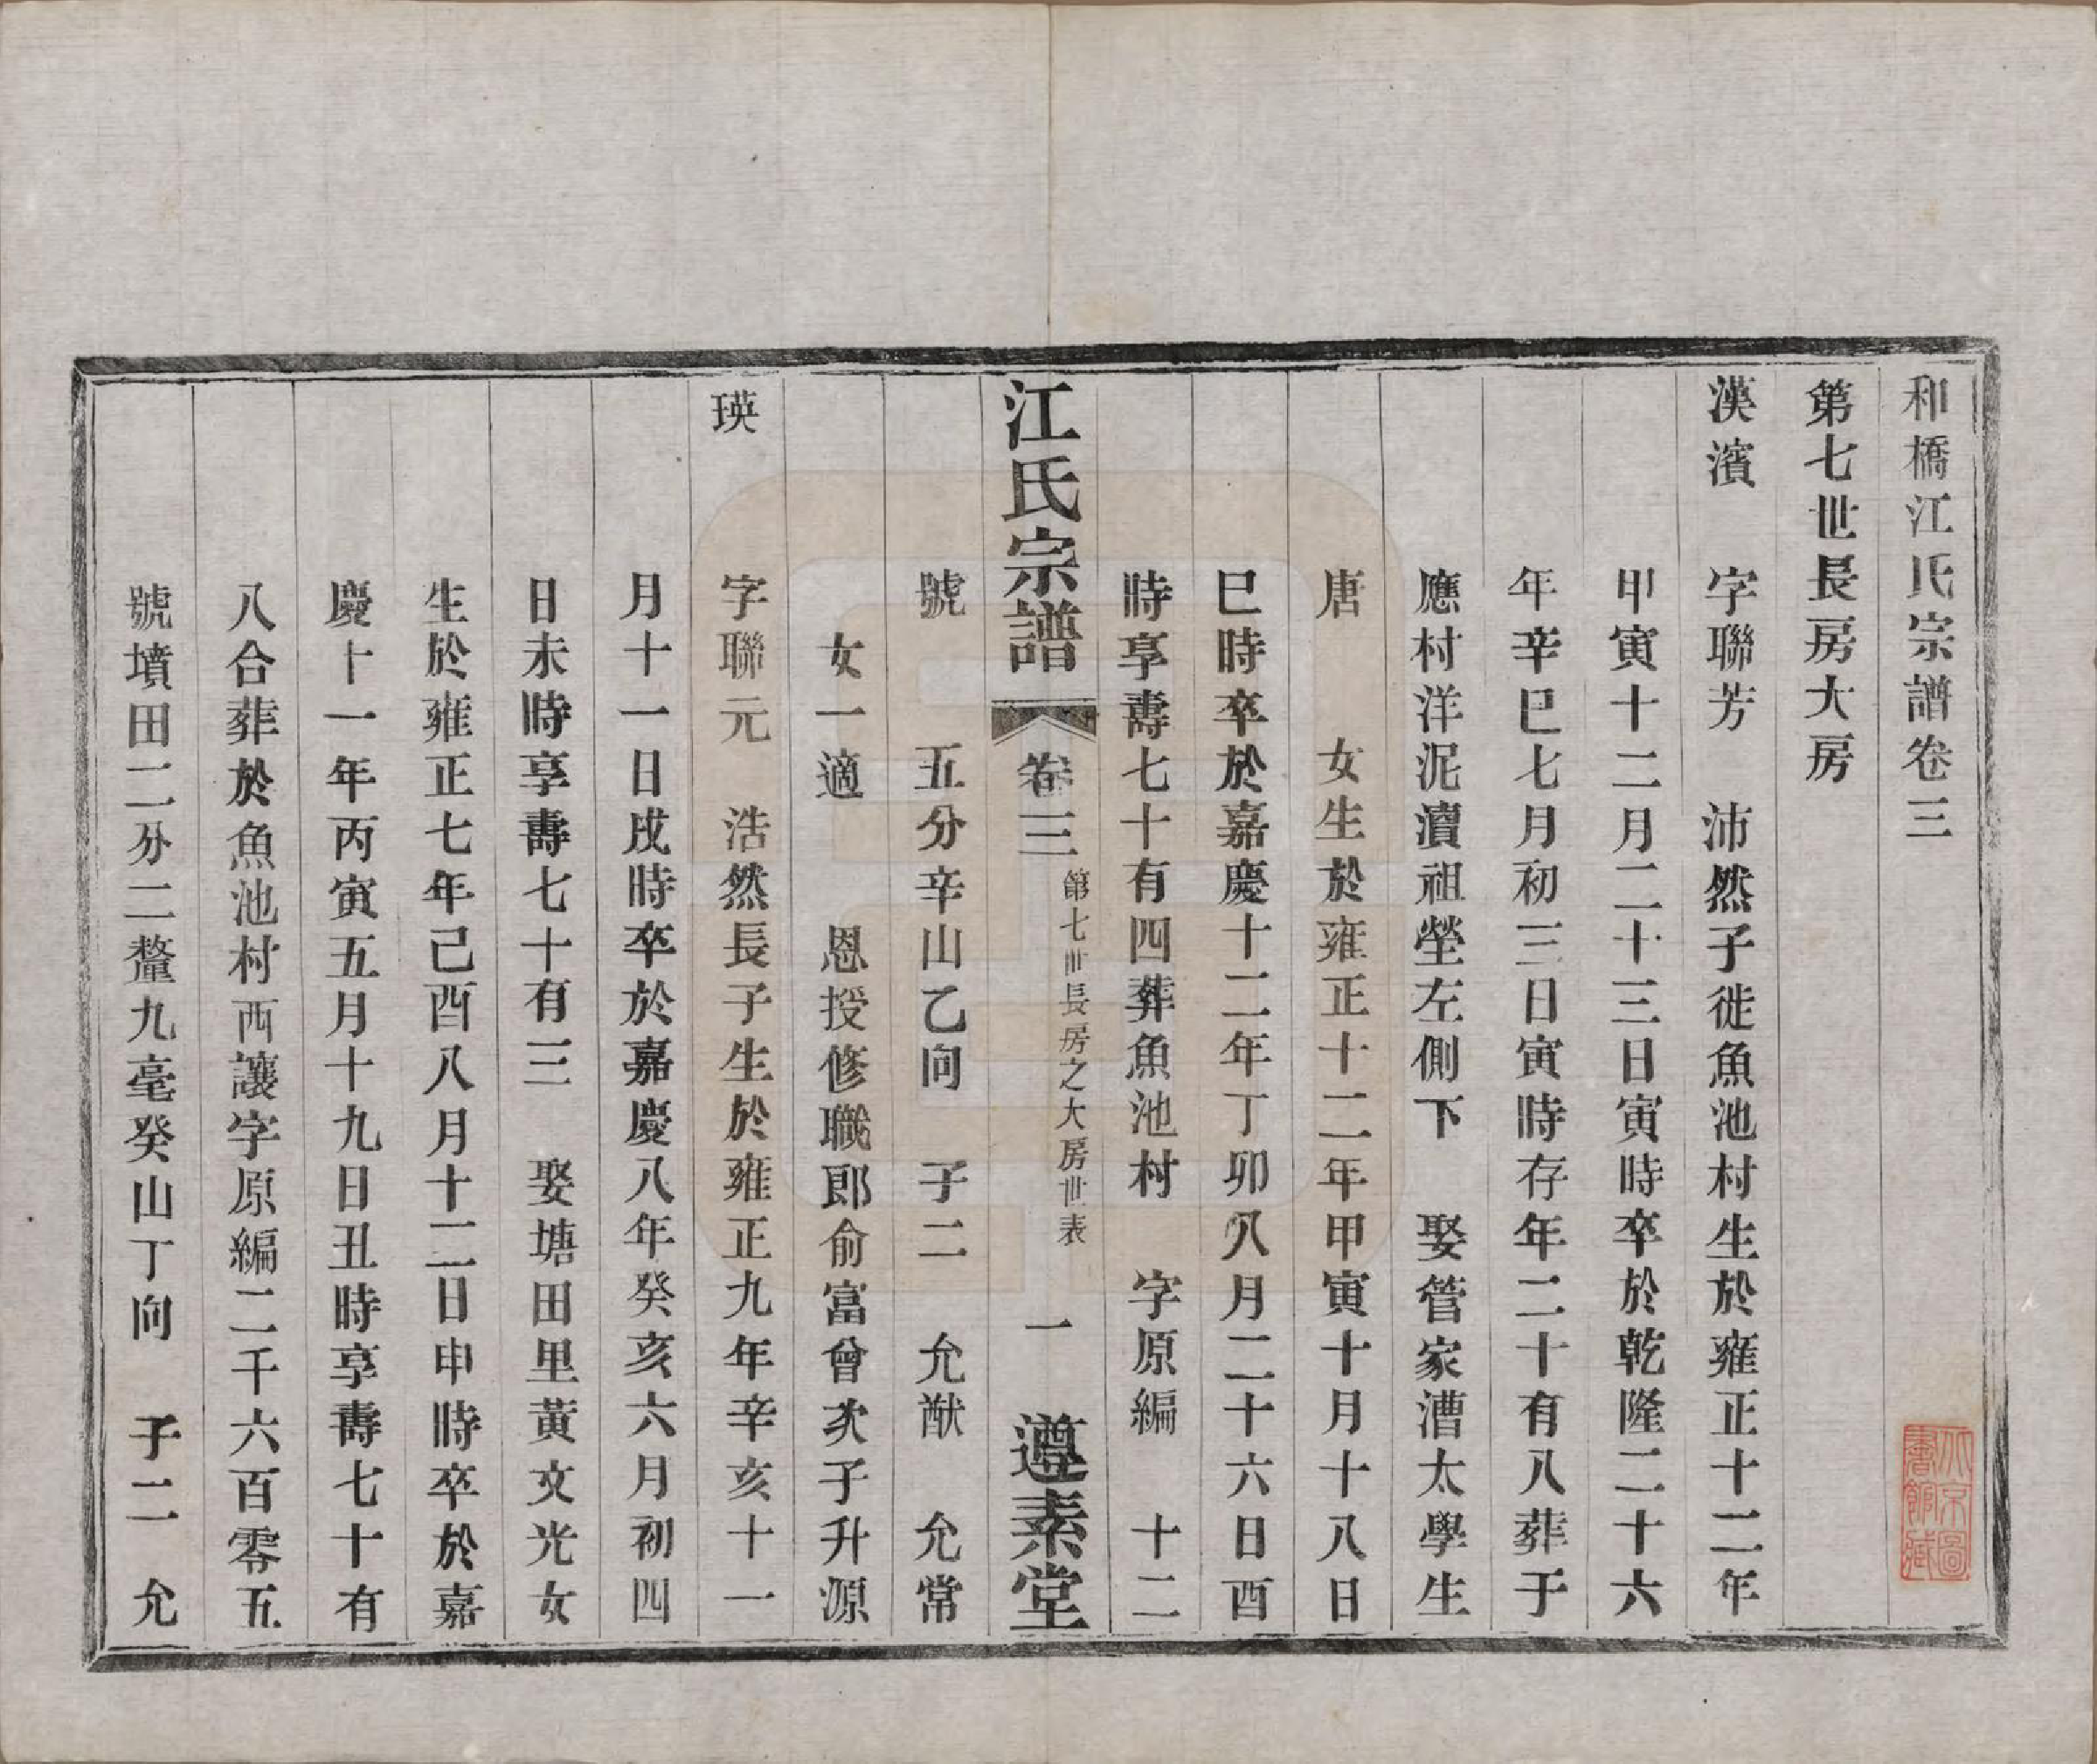 和橋江氏宗譜卷三
第七世長房大房
漢濱　字聯芳　沛然子徙魚池村生於雍正十二年
甲寅十二月二十三日寅時卒於乾隆二十六
年辛巳七月初三日寅時存年二十有八葬于
應村洋泥瀆祖塋左側下　娶管家漕太學生
唐　女生於雍正十二年甲寅十月十八日
巳時卒於嘉慶十二年丁卯八月二十六日酉
時享壽七十有四葬魚池村　字原編　十二
江氏宗譜　卷三　第七世長房之大房世表　一　遵素堂
號　五分辛山乙向　子二　允猷　允常
女一適　恩授修職郎俞富曾次子升源
瑛　字聯元　浩然長子生於雍正九年辛亥十一
月十一日戌時卒於嘉慶八年癸亥六月初四
日未時享壽七十有三　娶塘田里黃文光女
生於雍正七年己酉八月十二日申時卒於嘉
慶十一年丙寅五月十九日丑時享壽七十有
八合葬於魚池村西讓字原編二千六百零五
號墳田二分二釐九毫癸山丁向　子二　允
北京圖書館藏